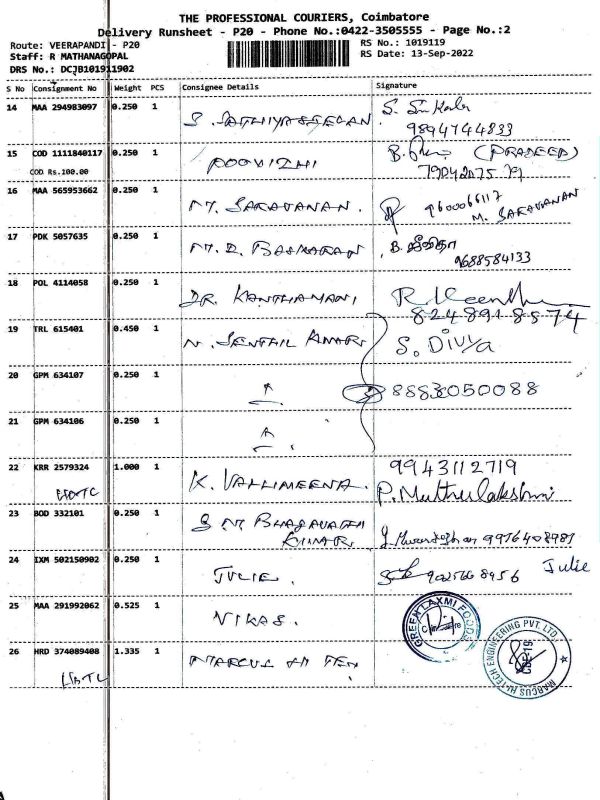 THE PROFESSIONAL COURIERS, Coimbatore
Delivery Runsheet - P20 - Phone No.:0422-3505555 - Page No.:2
Route: VEERAPANDI - P20
RS No.: 1019119
Staff: R MATHANAGOPAL
RS Date: 13-Sep-2022
DRS No.: DCJB101911902
S No Consignment No Weight PCS Consignee Details Signature
14 MAA 294983097 0.250 1 S. SATHIYASEELAN
9894744833
15 COD 1111840117 0.250 1 POOVIZHI B. (PRADEEP)
COD Rs.100.00
16 MAA 565953662 0.250 1 M. SARAVANAN. 9600066117
M. SARAVANAN
17 PDK 5057635 0.250 1 M. R. BASKARAN B. ஜீவிதா
9688584133
18 POL 4114058 0.250 1 DR. KANTHAMANI
8248918574
19 TRL 615401 0.450 1 N. SENTHIL KUMAR S. Divya
20 GPM 634107 0.250 1 8883050088
21 GPM 634106 0.250 1
22 KRR 2579324 1.000 1 K. VALLIMEENA. 9943112719
P. Muthulakshmi
23 BOD 332101 0.250 1 S M BHAGAVATH
KUMAR 9976408981
24 IXM 502150902 0.250 1 JULIE. Julie
25 MAA 291992062 0.525 1 VIKAS.
GREEN LAXMI FOODS
26 HRD 374089408 1.335 1 MARCUS HI TEN
MARCUS HI-TECH ENGINEERING PVT. LTD.
CBE-19